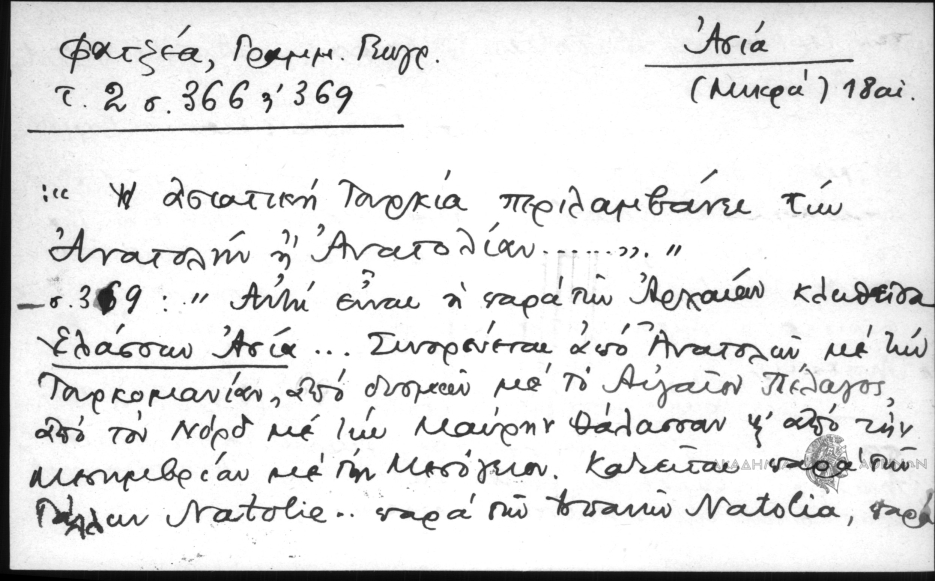 Φατζέα, Γραμμ. Γεωγρ.
τ. 2 σ. 366 ἤ 369
Ἀσία
(Μικρά) 18 αἰ.
:“ Ἡ ἀσιατική Τουρκία περιλαμβάνει τήν
Ἀνατολήν ἤ Ἀνατολίαν.......”. ”
– σ. 369 : “ Αὐτή εἶναι ἡ παρά τῶν Ἀρχαίων κληθεῖσα
Ἐλάσσων Ἀσία ... Συνορεύεται ἀπό Ἀνατολῶν μέ τήν
Τουρκομανίαν, ἀπό δυσμῶν μέ τό Αἰγαῖον Πέλαγος,
ἀπό τόν Νόρδ μέ τήν Μαύρην Θάλασσαν ϗ ἀπό τήν
Μεσημβρίαν μέ τήν Μεσόγειον. Καλεῖται παρά τῶν
Γάλλων Natolie .. παρά τῶν Ἱσπανῶν Natolia, παρά
ΑΚΑΔΗΜΙΑ ΑΘΗΝΩΝ